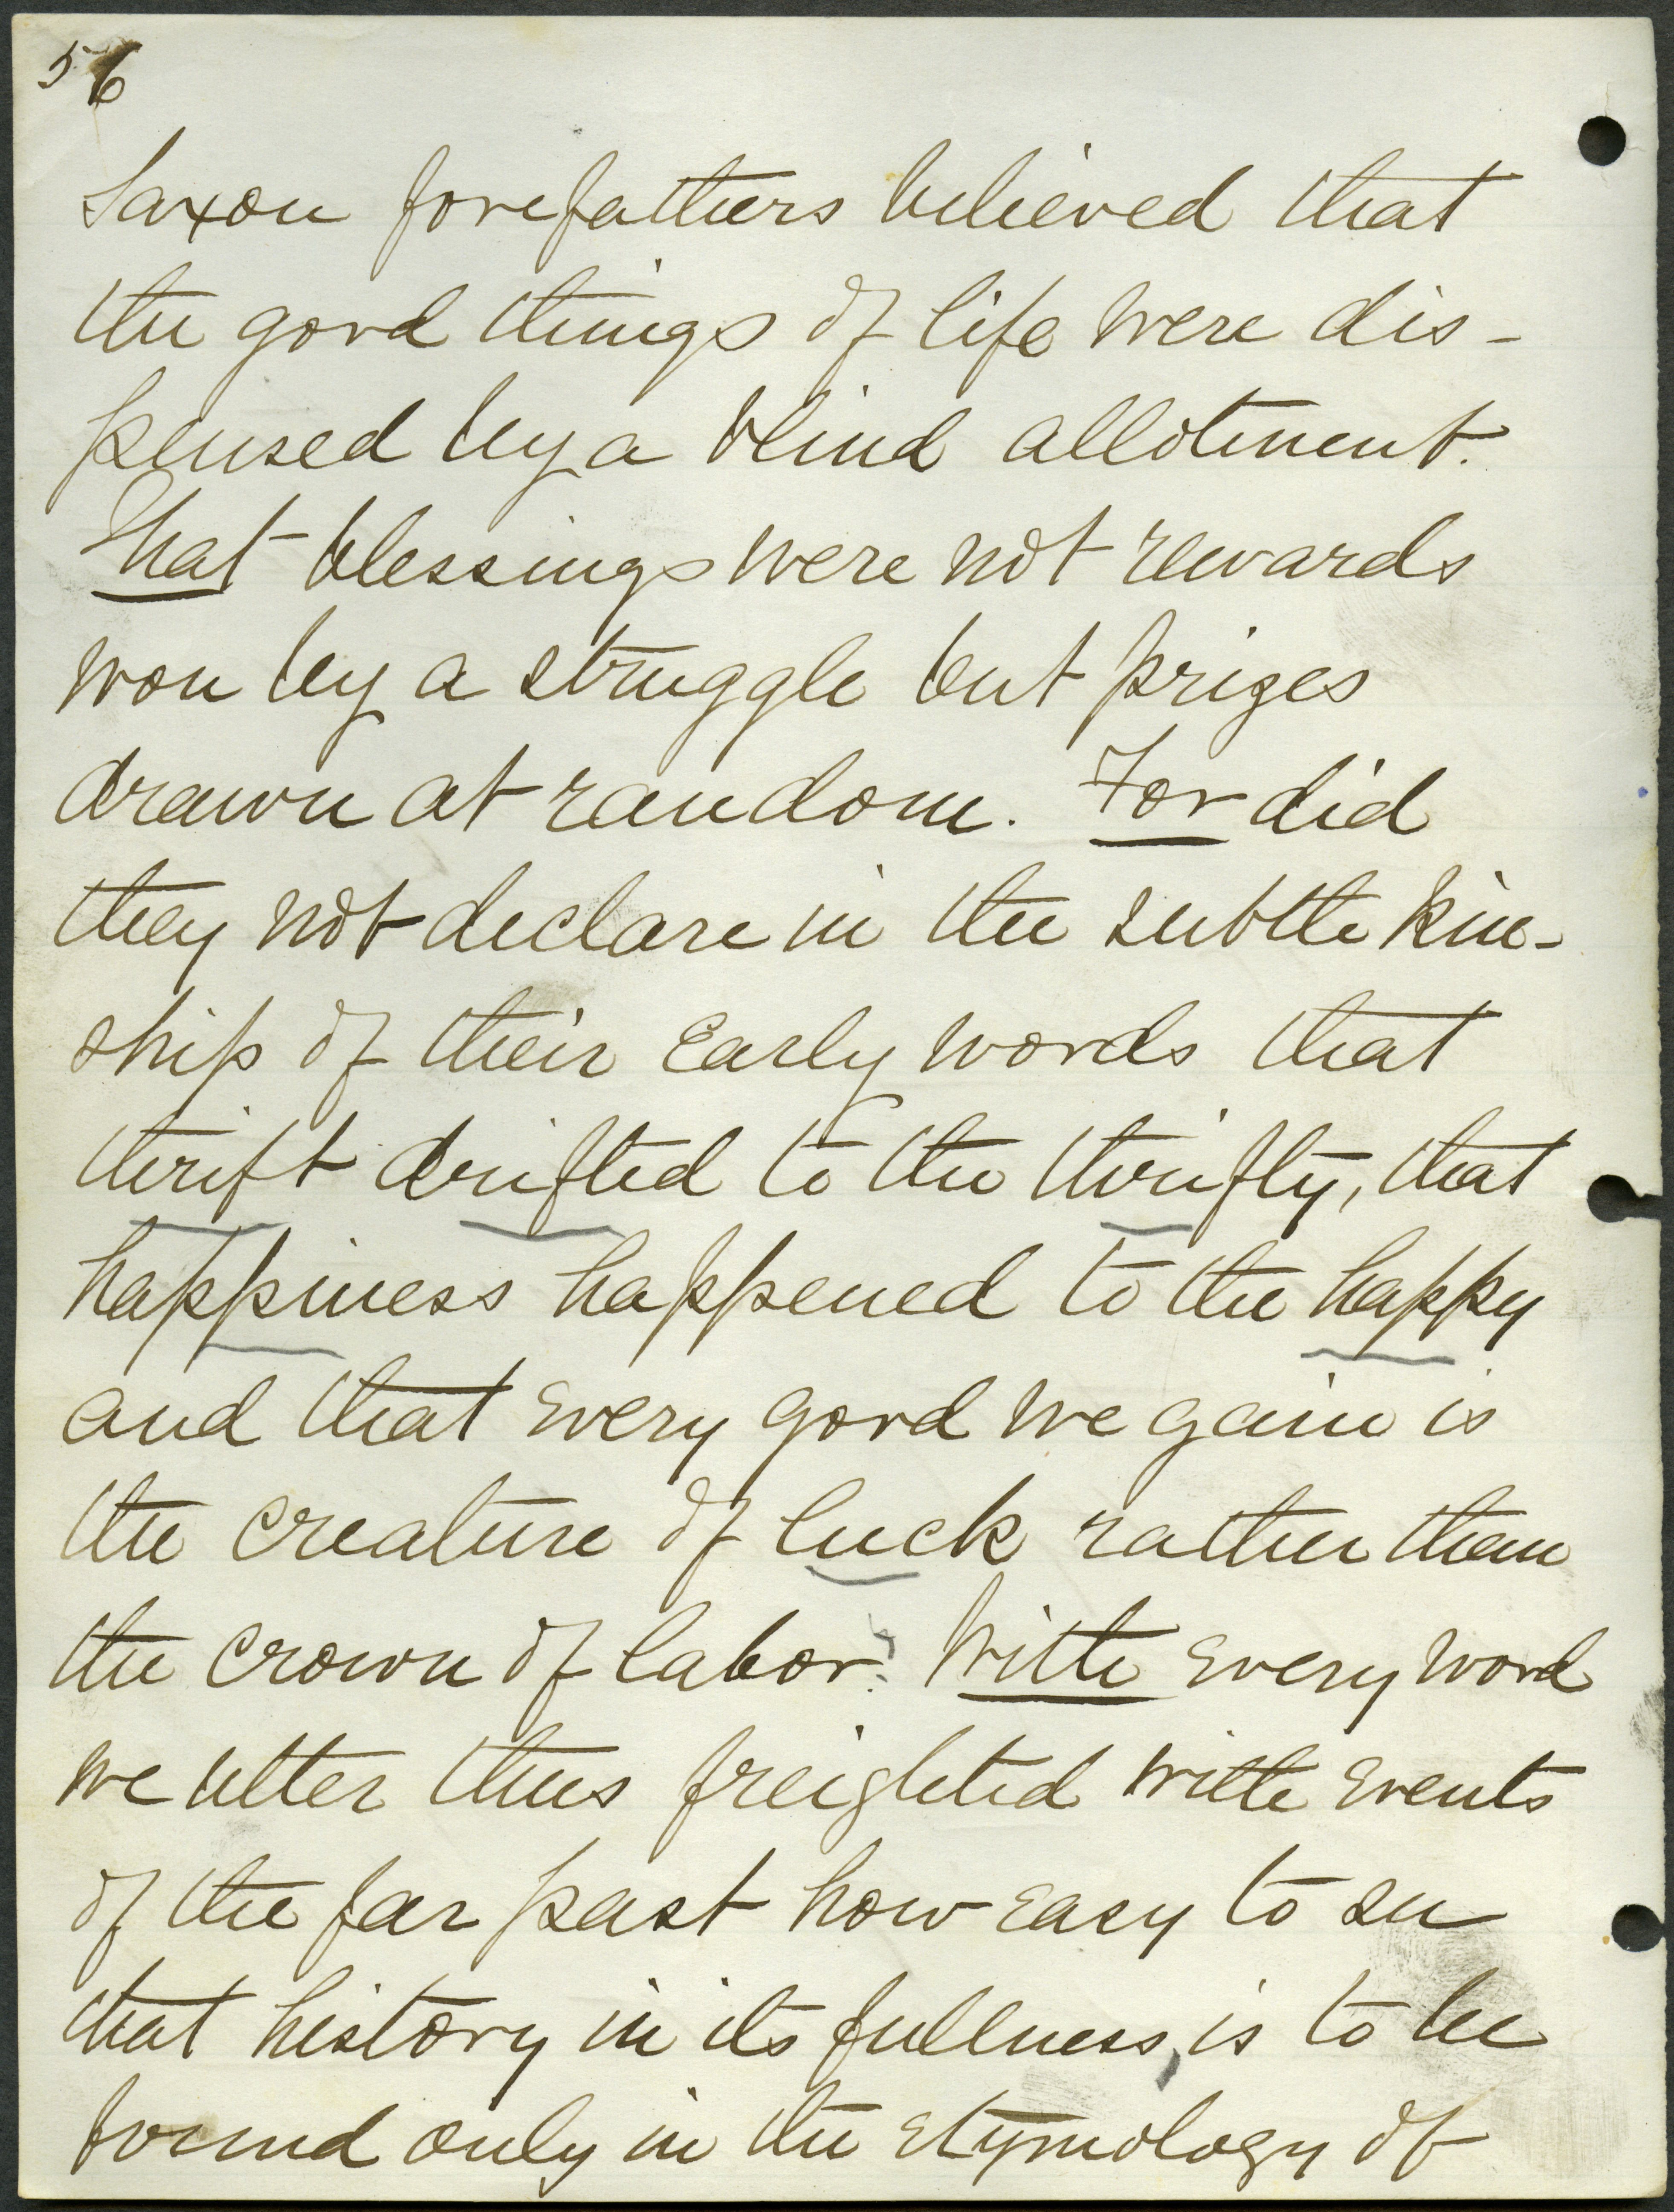 56
Saxon forefathers believed that
the good things of life were dis-
pensed by a blind allotment.
That blessings were not rewards
won by a struggle but prizes
drawn at random. For did
they not declare in the subtle kin-
ship of their early words that
thrift drifted to the thrifty, that
happiness happened to the happy
and that every good we gain is
the creature of luck rather than
the crown of labor? With every word
we utter thus freighted with events
of the far past how easy to see
that history in its fullness, is to be
found only in the etymology of